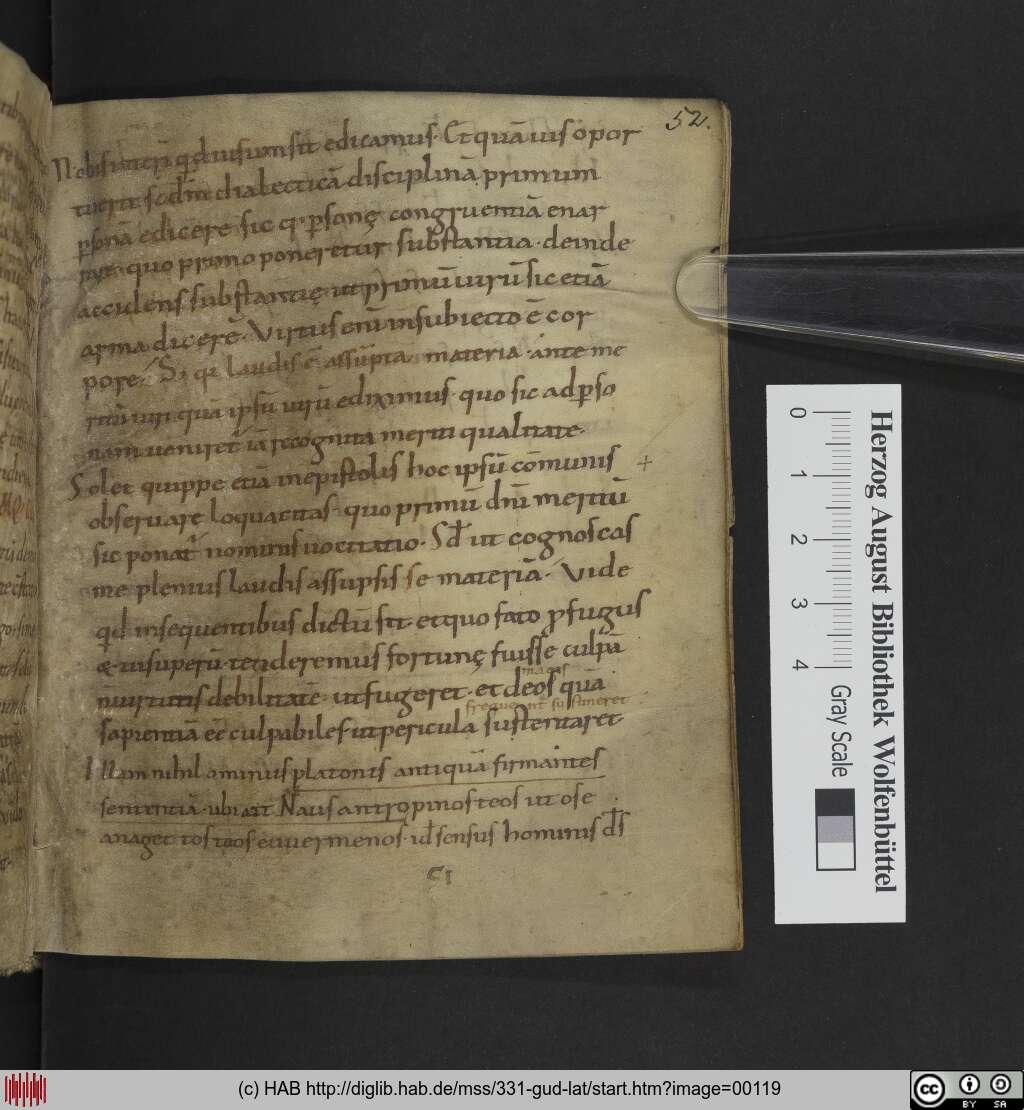 52.
Nobis itaq; qd uisum sit edicamus. Et quā uis opor
tuerit scdm dialecticā disciplinā primum
psonā edicere sic q; psonę congruentiā enar
rare. quo primo poneretur substantia. deinde
accidens substantię. ut primū uirū sic etiā
arma dicerē. Virtus enī in subiecto ē cor
pore. Si q laudis ē assūpta materia. ante me
ritū uiri quā ipsū uirū edixīmus. quo sic ad pso
nam ueniret iā recognita meriti qualitate.
Solet quippe etiā in epistolis hoc ipsū cōmunis +
obseruare loquacitas. quo primū dnī meritū
sic ponat nominis uocitatio. Sđ ut cognoscas
me plenius laudis assupsisse materiā. Vide
qd in sequentibus dictū sit et quo fato pfugus
& insuperū. tenderemus fortunę fuisse culpā
n uirtutis debilitatē. ut fugeret. et deos quā
magis
sapientiā eē culpabiles. ut pericula sustentaret
frequent sustineret
Nam nihilominus platonis antiquā firmantes
sententiā. ubi ait Naus antropinos teos ut ose
anaget tos teos euuermenos. uł sensus hominis đs